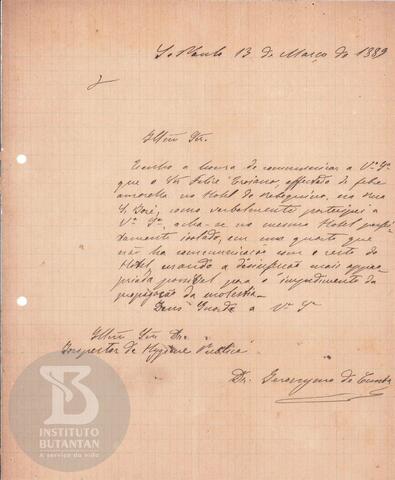 S. Paulo 13 de Março de 1889
Illmo Snr.
Tenho a honra de communicar a Vª Sª
que o Snr Felice Troiano, affectado de febre
amarella no Hotel do, na rua
S. José, como verbalmente participei a
Vª Sª, acha-se no mesmo Hotel perfei-
tamente isolado, em um quarto que
não ha communicação com o resto do
Hotel, usando a desinfecção mais appro-
priada possivel para o impedimento da
propagação da molestia.
Deus Guarde a Vª Sª
Illmo Snr Dr.
Inspector de Hygiene Publica
Dr. Geronymo da Cunha
INSTITUTO
BUTANTAN
A serviço da vida